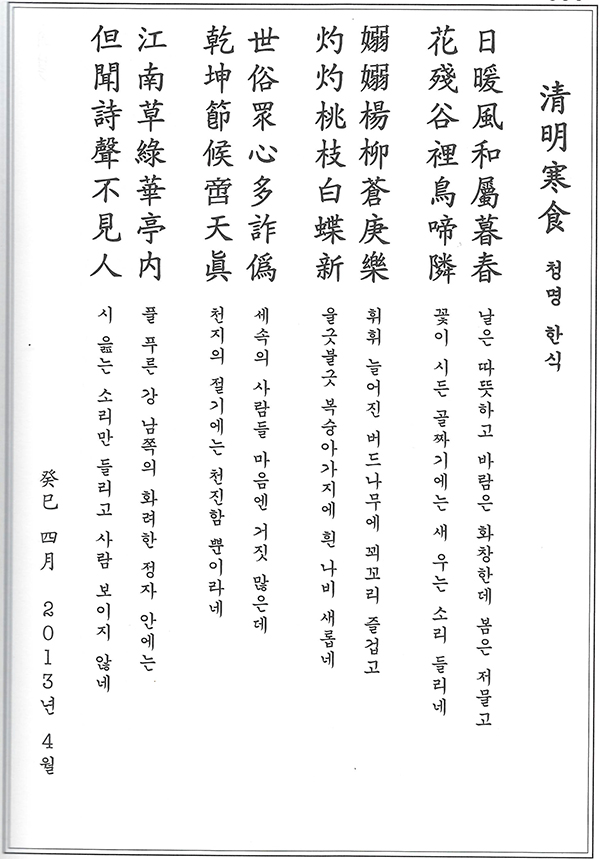 清明寒食 청명 한식
日暖風和屬暮春 날은 따뜻하고 바람은 화창한데 봄은 저물고
花殘谷裡鳥啼隣 꽃이 시든 골짜기에는 새 우는 소리 들리네
嫋嫋楊柳蒼庚樂 휘휘 늘어진 버드나무에 꾀꼬리 즐겁고
灼灼桃枝白蝶新 울긋불긋 복숭아가지에 흰 나비 새롭네
世俗眾心多詐僞 세속의 사람들 마음엔 거짓 많은데
乾坤節候啻天眞 천지의 절기에는 천진함 뿐이라네
江南草綠華亭内 풀 푸른 강 남쪽의 화려한 정자 안에는
但聞詩聲不見人 시 읊는 소리만 들리고 사람 보이지 않네
癸巳 四月 2013년 4월